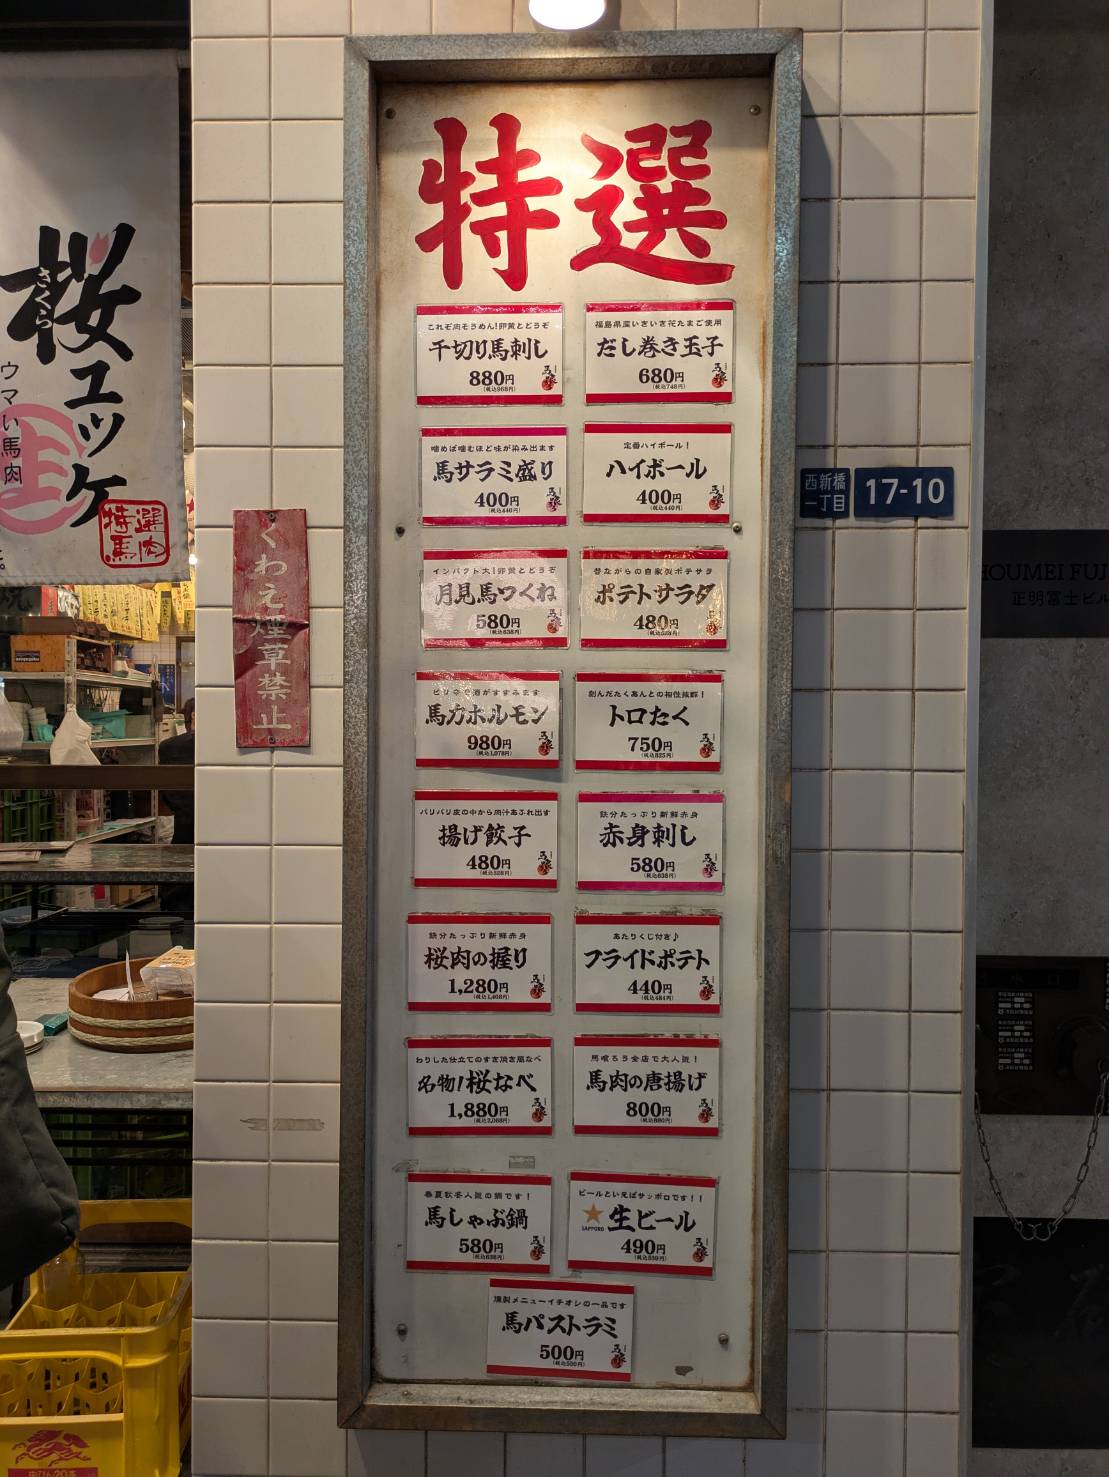 特選
これぞ肉そうめん!卵黄とどうぞ
千切り馬刺し
880円
(税込968円)
福島県産いきいき花たまご使用
だし巻き玉子
680円
(税込748円)
噛めば噛むほど味が染み出ます
馬サラミ盛り
400円
(税込440円)
定番ハイボール!
ハイボール
400円
(税込440円)
インパクト大!卵黄とどうぞ
月見馬つくね
580円
(税込638円)
昔ながらの自家製ポテサラ
ポテトサラダ
480円
(税込528円)
ピリ辛で酒がすすみます
馬力ホルモン
980円
(税込1,078円)
刻んだたくあんとの相性抜群!
トロたく
750円
(税込825円)
パリパリ皮の中から肉汁あふれ出す
揚げ餃子
480円
(税込528円)
鉄分たっぷり新鮮赤身
赤身刺し
580円
(税込638円)
鉄分たっぷり新鮮赤身
桜肉の握り
1,280円
(税込1,408円)
あたりくじ付き♪
フライドポテト
440円
(税込484円)
わりした仕立てのすき焼き風なべ
名物!桜なべ
1,880円
(税込2,068円)
馬喰ろう全店で大人気!
馬肉の唐揚げ
800円
(税込880円)
春夏秋冬人気の鍋です!
馬しゃぶ鍋
580円
(税込638円)
ビールといえばサッポロです!!
SAPPORO
生ビール
490円
(税込539円)
燻製メニューイチオシの一品です
馬パストラミ
500円
(税込550円)
桜ユッケ
さくら
ウマい馬肉
特選馬肉
くわえ煙草禁止
西新橋
一丁目
17-10
HOUMEI FUJ
正明富士ビル